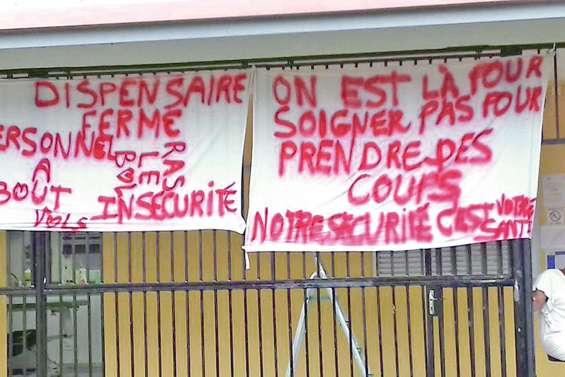 DISPENSAIRE
FERMÉ
PERSONNEL
A
BOUT
RAS
LE
BOL
VOLS
INSÉCURITÉ
ON EST LÀ POUR
SOIGNER PAS POUR
PRENDRE DES
COUPS
NOTRE SÉCURITÉ C'EST VOTRE
SANTÉ